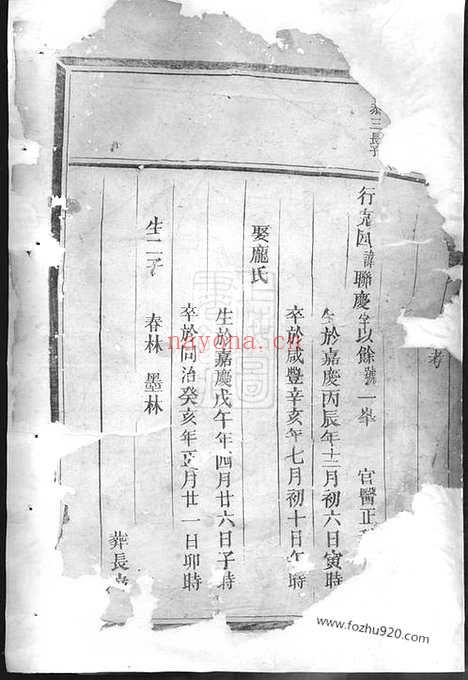 三長子
行克四諱聯慶字以餘號一峯 官醫正
生於嘉慶丙辰年十二月初六日寅時
卒於咸豐辛亥年七月初十日午時
娶龐氏
生於嘉慶戊午年四月廿六日子時
卒於同治癸亥年正月廿一日卯時
生二子 春林 墨林
葬長
考
nayona.cn
www.fozhu920.com